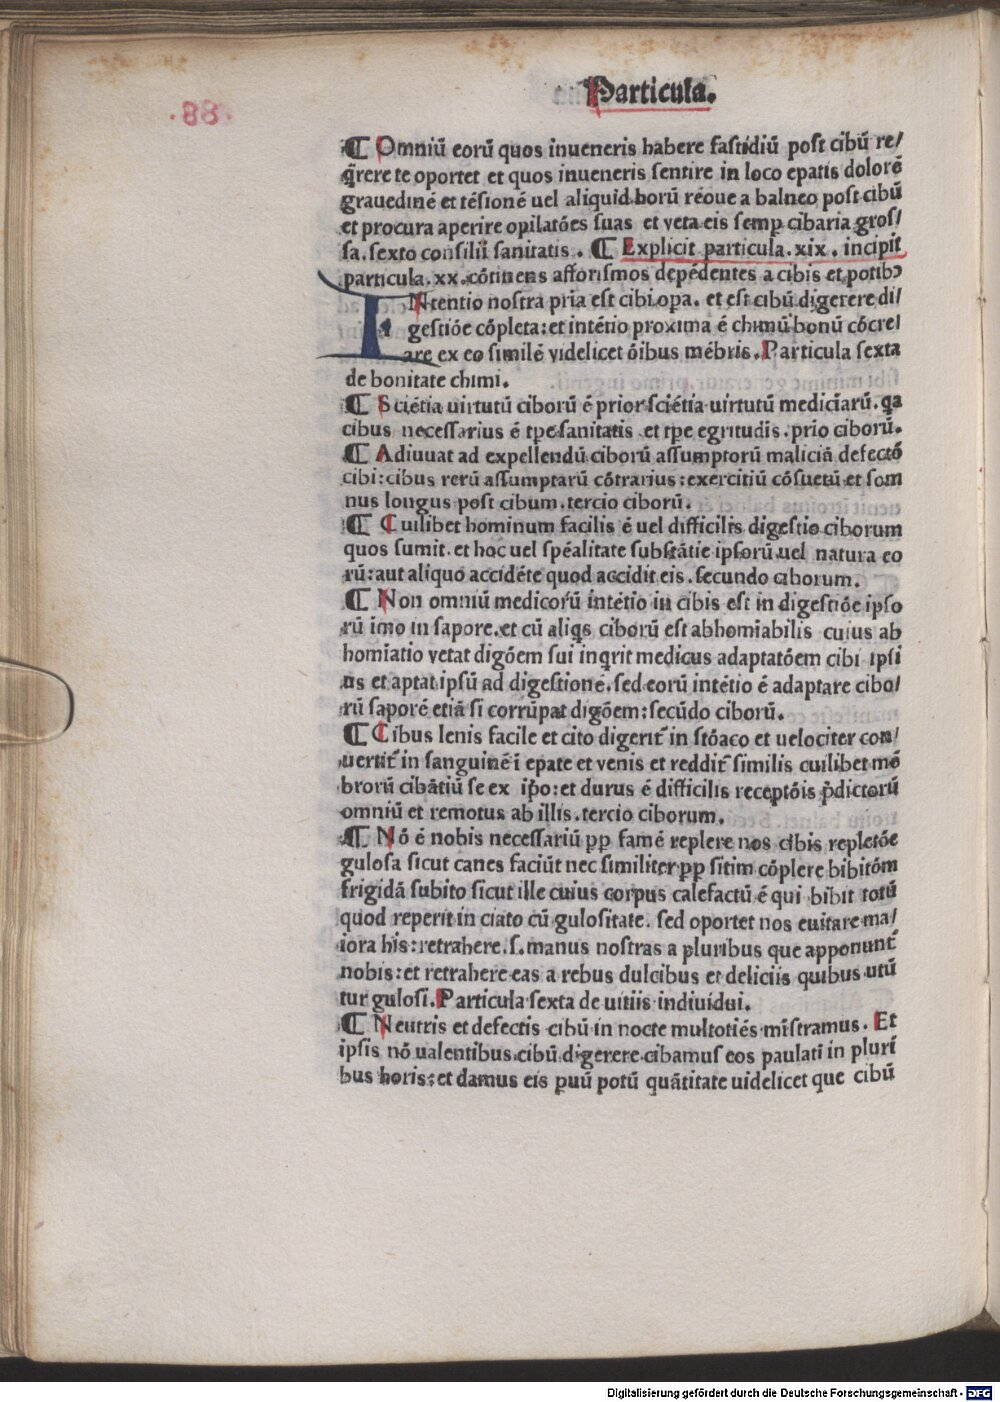 Particula.
.88.
¶ Omniū eorū quos inueneris habere fastidiū post cibū re/
q̄rere te oportet et quos inueneris sentire in loco epatis dolorē
grauedinē et tēsionē uel aliquid horū rēoue a balneo post cibū
et procura aperire opilatōes suas et veta eis semp cibaria gros/
sa. sexto consilii sanitatis. ¶ Explicit particula. xix. incipit
particula. xx. cōtinens afforismos depēdentes a cibis et potibꝰ
INtentio nostra pria est cibi opa. et est cibū digerere di/
gestiōe cōpleta: et intētio proxima ē chimū bonū cōcre/
are ex eo similē videlicet ōibus mēbris. Particula sexta
de bonitate chimi.
¶ Sciētia uirtutū ciborū ē prior sciētia uirtutū mediciārū. qa
cibus necessarius ē tpe sanitatis et tpe egritudis. prio ciborū.
¶ Adiuuat ad expellendū ciborū assumptorū maliciā defectō
cibi: cibus rerū assumptarū cōtrarius: exercitiū cōsuetū et som
nus longus post cibum. tercio ciborū.
¶ Cuilibet hominum facilis ē uel difficilis digestio ciborum
quos sumit. et hoc uel spēalitate substātie ipsorū uel natura eo
rū: aut aliquo accidēte quod accidit eis. secundo ciborum.
¶ Non omniū medicorū intētio in cibis est in digestiōe ipso
rū imo in sapore. et cū aliqs ciborū est abhomiabilis cuius ab
homiatio vetat digōem sui inqrit medicus adaptatōem cibi ipsi
us et aptat ipsū ad digestionē. sed eorū intētio ē adaptare cibo/
rū saporē etiā si corrūpat digōem: secūdo ciborū.
¶ Cibus lenis facile et cito digerit̄ in stōaco et uelociter con/
uertit̄ in sanguinē ī epate et venis et reddit̄ similis cuilibet mē
brorū cibātiū se ex ipo: et durus ē difficilis receptōis p̄dictorū
omniū et remotus ab illis. tercio ciborum.
¶ Nō ē nobis necessariū pp famē replere nos cibis repletōe
gulosa sicut canes faciūt nec similiter pp sitim cōplere bibitōm
frigidā subito sicut ille cuius corpus calefactū ē qui bibit totū
quod reperit in ciato cū gulositate. sed oportet nos euitare ma/
iora his: retrahere. s. manus nostras a pluribus que apponunt̄
nobis: et retrahere eas a rebus dulcibus et deliciis quibus utū
tur gulosi. Particula sexta de uitiis indiuidui.
¶ Neutris et defectis cibū in nocte multotiēs mīstramus. Et
ipsis nō ualentibus cibū digerere cibamus eos paulatī in plurī
bus horis: et damus eis puū potū quātitate uidelicet que cibū
Digitalisierung gefördert durch die Deutsche Forschungsgemeinschaft - DFG